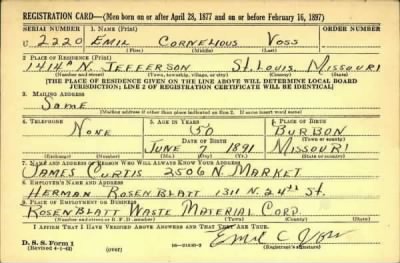 REGISTRATION CARD—(Men born on or after April 28, 1877 and on or before February 16, 1897)
SERIAL NUMBER 1. NAME (Print) ORDER NUMBER
U 2220 EMIL CORNELIOUS VOSS
(First) (Middle) (Last)
2. PLACE OF RESIDENCE (Print)
1414ᴬ N. JEFFERSON ST. LOUIS MISSOURI
(Number and street) (Town, township, village, or city) (County) (State)
[THE PLACE OF RESIDENCE GIVEN ON THE LINE ABOVE WILL DETERMINE LOCAL BOARD
JURISDICTION; LINE 2 OF REGISTRATION CERTIFICATE WILL BE IDENTICAL]
3. MAILING ADDRESS
SAME
[Mailing address if other than place indicated on line 2. If same insert word same]
4. TELEPHONE 5. AGE IN YEARS 6. PLACE OF BIRTH
NONE 50 BURBON
DATE OF BIRTH (Town or county)
JUNE 7 1891 MISSOURI
(Exchange) (Number) (Mo.) (Day) (Yr.) (State or country)
7. NAME AND ADDRESS OF PERSON WHO WILL ALWAYS KNOW YOUR ADDRESS
JAMES CURTIS 2506 N. MARKET
8. EMPLOYER'S NAME AND ADDRESS
HERMAN ROSENBLATT 1311 N. 24TH ST.
9. PLACE OF EMPLOYMENT OR BUSINESS
ROSENBLATT WASTE MATERIAL CORP
(Number and street or R. F. D. number) (Town) (County) (State)
I AFFIRM THAT I HAVE VERIFIED ABOVE ANSWERS AND THAT THEY ARE TRUE.
D. S. S. Form 1 Emil C Voss
(Revised 4-1-42) (over) (Registrant's signature)